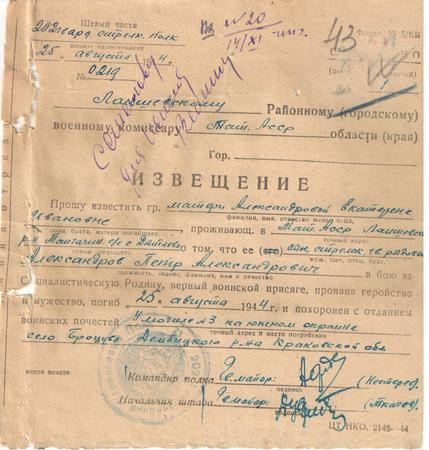 Штамп части
202 гвард. стрелк. полк
Форма № 5/БП
25 августа 1944 г.
№ 0219
№ 20
14/XI-44 г.
43
Лаишевскому Районному (городскому)
военному комиссару Тат. Асср области (края)
Гор.
ИЗВЕЩЕНИЕ
Прошу известить гр. матери Александровой Екатерине
Ивановне
фамилия, имя, отчество жены,
отца, брата, матери погибшего
проживающ. в Тат. Асср Лаишевск
р-н о том, что ее сын, стрелок, гв. рядовой
муж; сын, отец,
Александров Петр Александрович в бою за
должность, звание, фамилия, имя и отчество
Социалистическую Родину, верный воинской присяге, проявив геройство
и мужество, погиб 25 августа 1944 г и похоронен с отданием
воинских почестей У могиле № 3 на южном окраине
точный адрес и место погребения
село Броцувц Дембицкого р-на Краковской обл.
место печати
Командир полка Гв. майор: (Нестеров)
подпись
Начальник штаба Гв. майор: (Ткачев)
подпись
ЦТ НКО. 2148-44